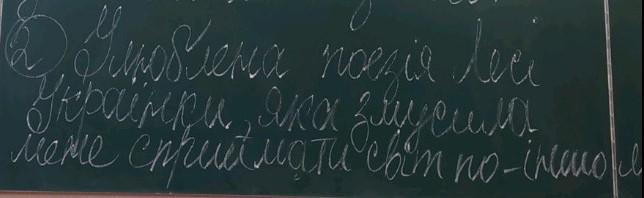 2) Улюблена поезія Лесі
Українки, яка змусила
мене сприймати світ по-іншом